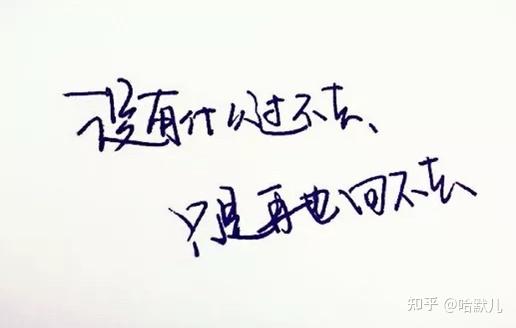 没有什么过不去、
只是再也回不去、
知乎 @哈默儿